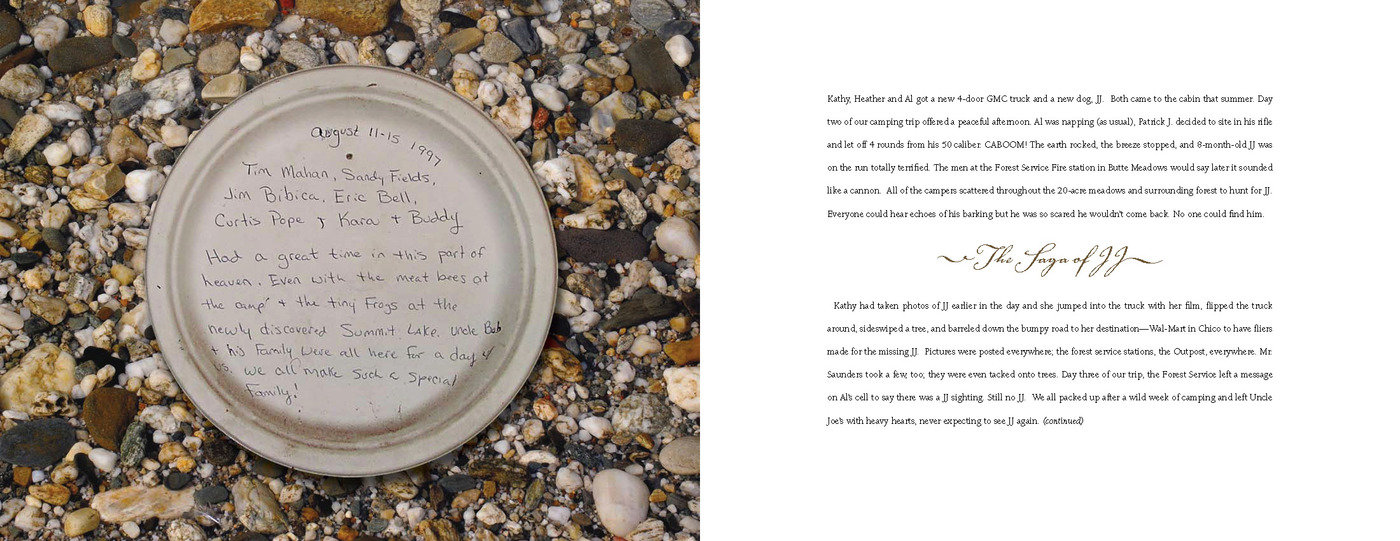 August 11-15 1997
Tim Mahan, Sandy Fields,
Jim Bibica, Eric Bell,
Curtis Pope, Kara + Buddy
Had a great time in this part of
heaven. Even with the meat bees at
the camp + the tiny Frogs at the
newly discovered Summit Lake. Uncle Bob
+ his Family were all here for a day
us. We all make such a special
Family!
Kathy, Heather and Al got a new 4-door GMC truck and a new dog, JJ. Both came to the cabin that summer. Day
two of our camping trip offered a peaceful afternoon. Al was napping (as usual), Patrick J. decided to site in his rifle
and let off 4 rounds from his 50 caliber. CABOOM! The earth rocked, the breeze stopped, and 8-month-old JJ was
on the run totally terrified. The men at the Forest Service Fire station in Butte Meadows would say later it sounded
like a cannon. All of the campers scattered throughout the 20-acre meadows and surrounding forest to hunt for JJ.
Everyone could hear echoes of his barking but he was so scared he wouldn't come back. No one could find him.
The Saga of JJ
Kathy had taken photos of JJ earlier in the day and she jumped into the truck with her film, flipped the truck
around, sideswiped a tree, and barreled down the bumpy road to her destination—Wal-Mart in Chico to have fliers
made for the missing JJ. Pictures were posted everywhere; the forest service stations, the Outpost, everywhere. Mr.
Saunders took a few, too; they were even tacked onto trees. Day three of our trip, the Forest Service left a message
on Al's cell to say there was a JJ sighting. Still no JJ. We all packed up after a wild week of camping and left Uncle
Joe's with heavy hearts, never expecting to see JJ again. (continued)